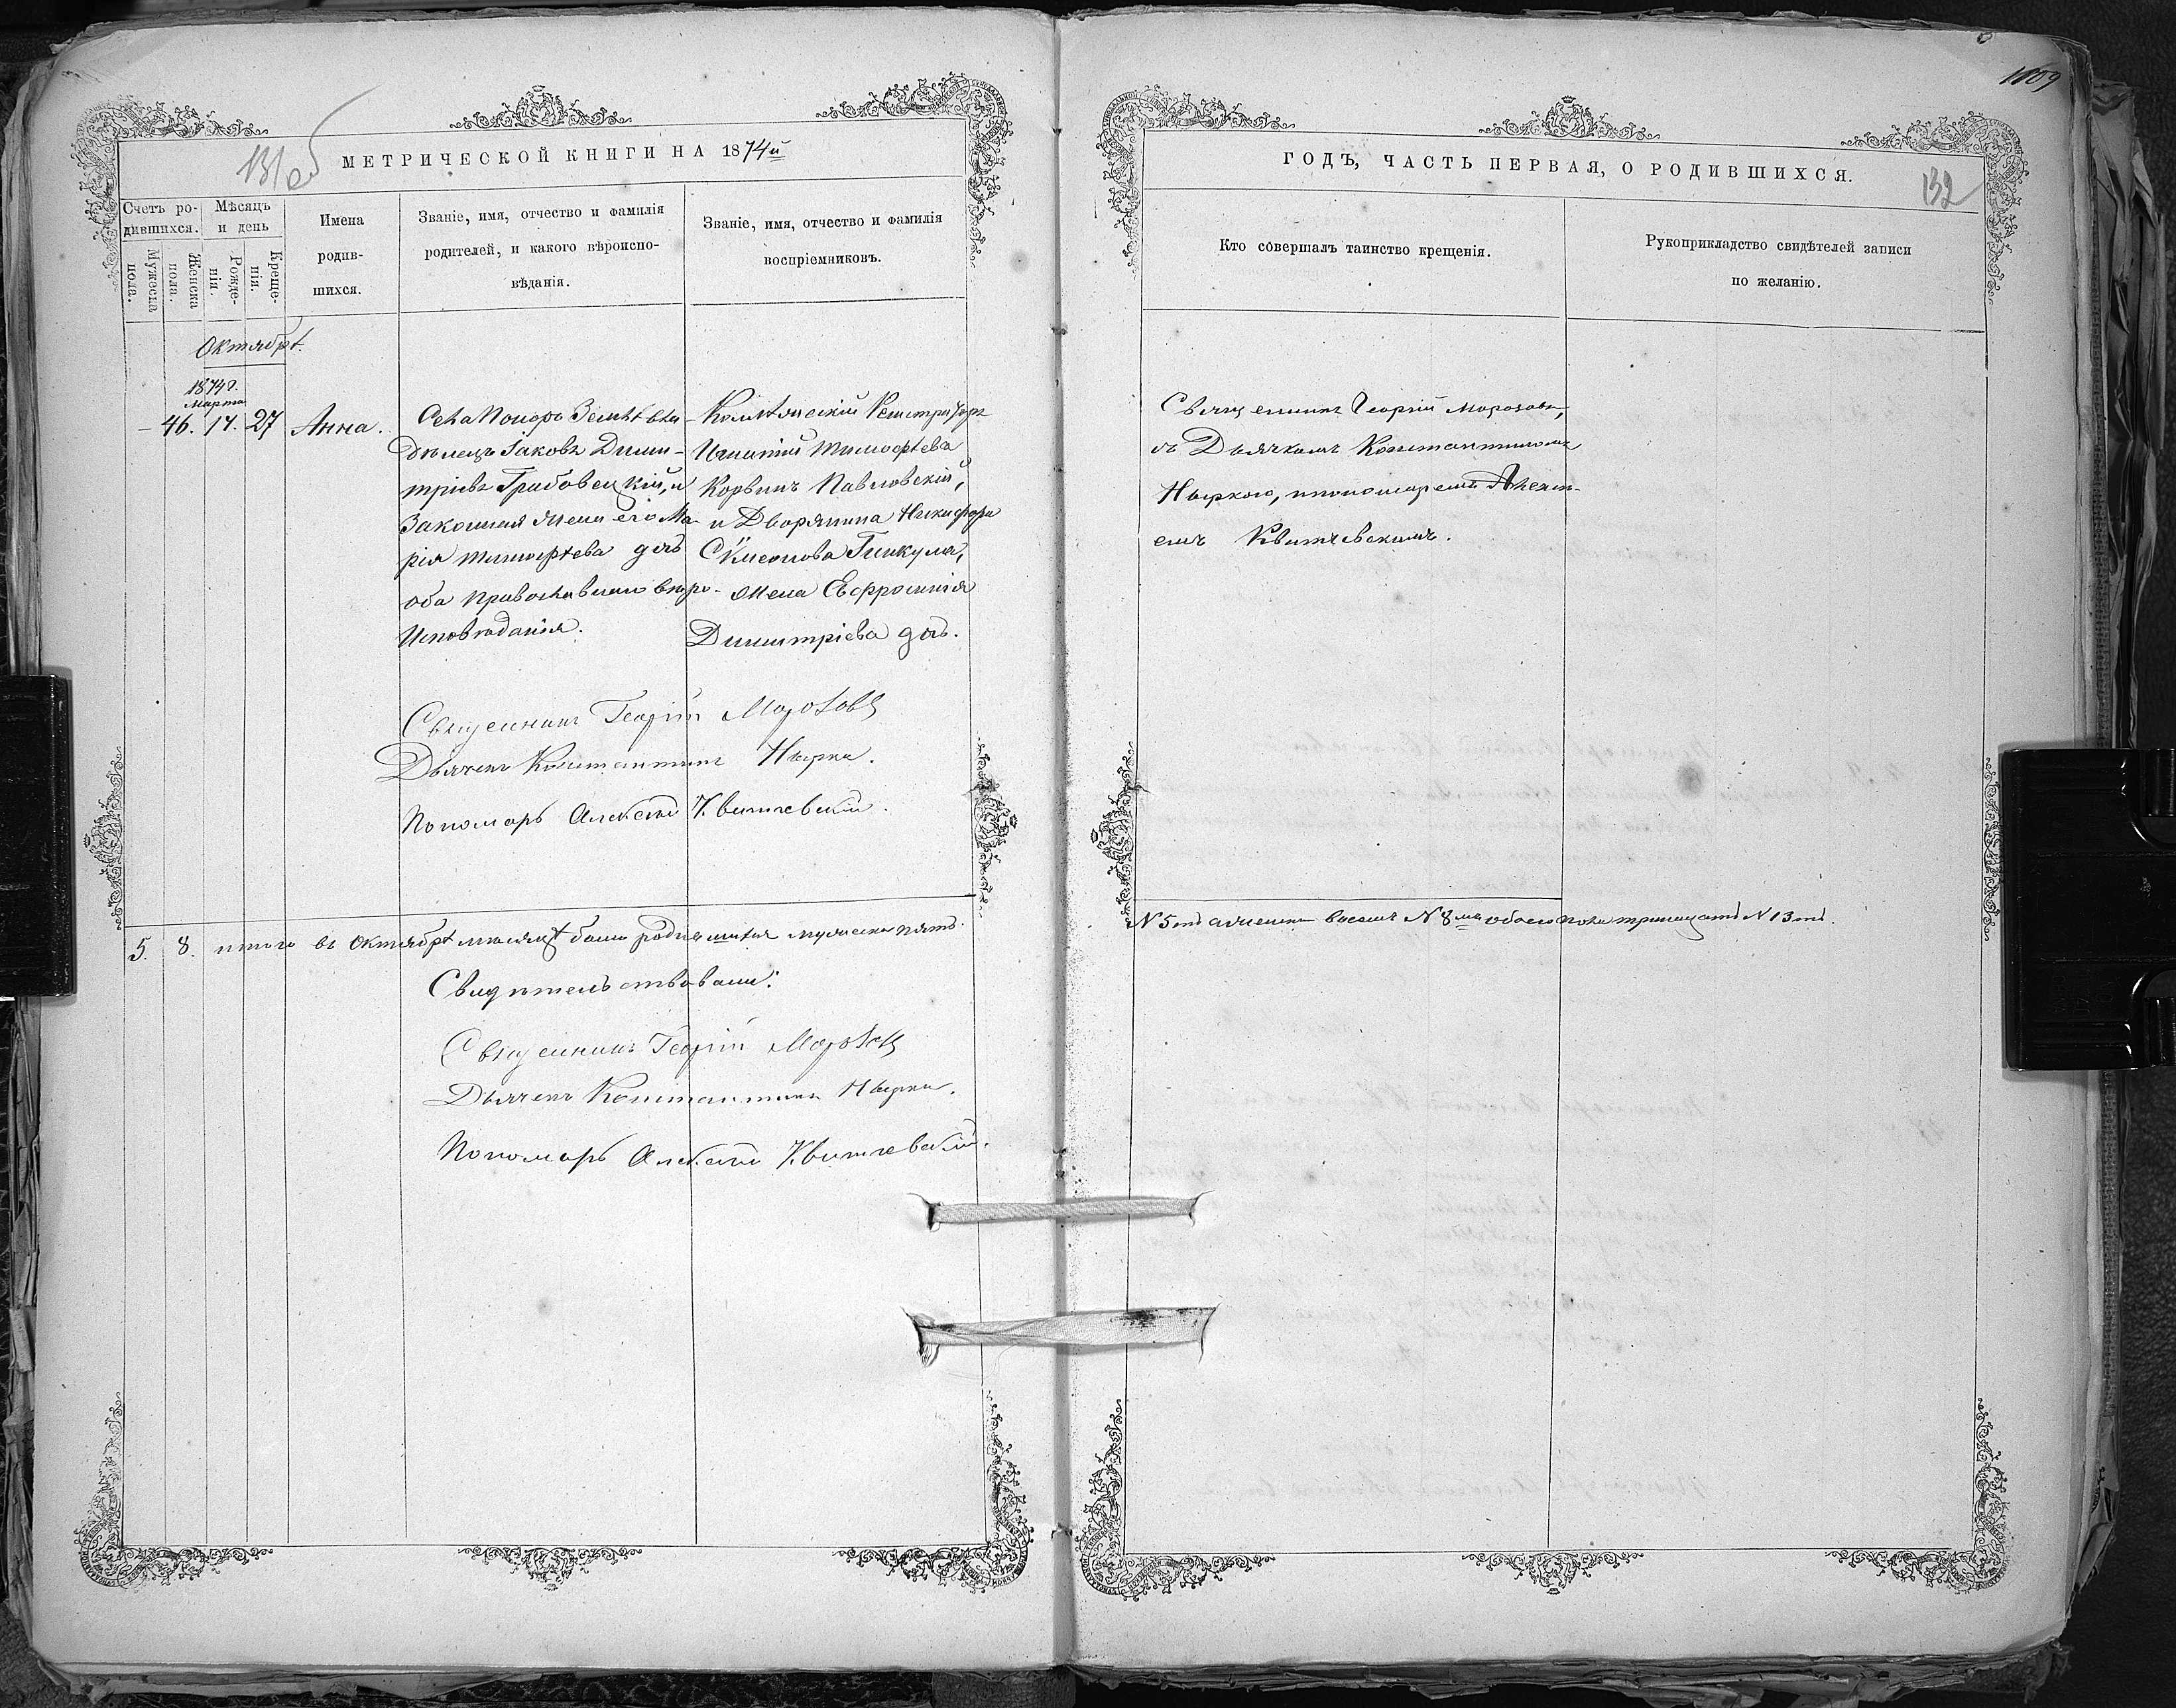 1109
131 об
МЕТРИЧЕСКОЙ КНИГИ НА 1874й
Счетъ ро-
дившихся.
Мужеска
пола.
Женска
пола.
Мѣсяцъ
и день
Рожде-
нія.
Креще-
нія.
Имена
родив-
шихся.
Званіе, имя, отчество и фамилія
родителей, и какого вѣроиспо-
вѣданія.
Званіе, имя, отчество и фамилія
воспріемниковъ.
Октябрѣ.
1874 г.
Марта
- 46. 14. 27 Анна.
Села Попоръ Землѣвла-
дѣлецъ Іаковъ Дими-
тріевъ Грабовецкій, и
Законная жена его Ма-
рія Тимофѣева дочь
оба православнаго вѣро-
Исповѣданія.
Коллѣжскій Регистраторъ
Игнатій Тимофѣевъ
Корвинъ Павловскій,
и Дворянина Никифора
Симеонова Гинкула,
жена Евфросинія
Димитріева дочь.
Священникъ Георгій Морозовъ
Дьячекъ Константинъ Нырка.
Пономарь Алексѣй Квитчевскій.
5. 8. итого въ Октябрѣ мѣсяцѣ было родившихся мужеска пять
Свидѣтельствовали:
Священникъ Георгій Морозовъ
Дьячекъ Константинъ Нырка.
Пономарь Алексѣй Квитчевскій.
ГОДЪ, ЧАСТЬ ПЕРВАЯ, О РОДИВШИХСЯ.
132
Кто совершалъ таинство крещенія.
Рукоприкладство свидѣтелей записи
по желанію.
Священникъ Георгій Морозовъ,
съ Дьячкомъ Константиномъ
Ныркою, и пономаремъ Алексѣ-
емъ Квитчевскимъ.
N 5ть а женска восемь N 8мь обоего пола тринадцать N 13ть